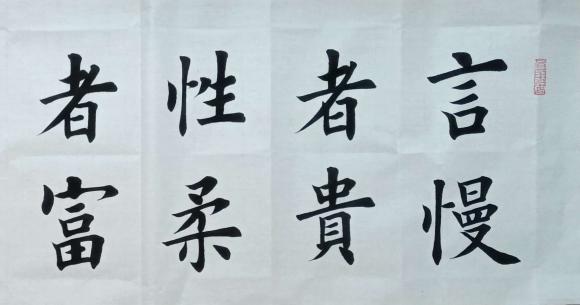 言慢
者貴
性柔
者富